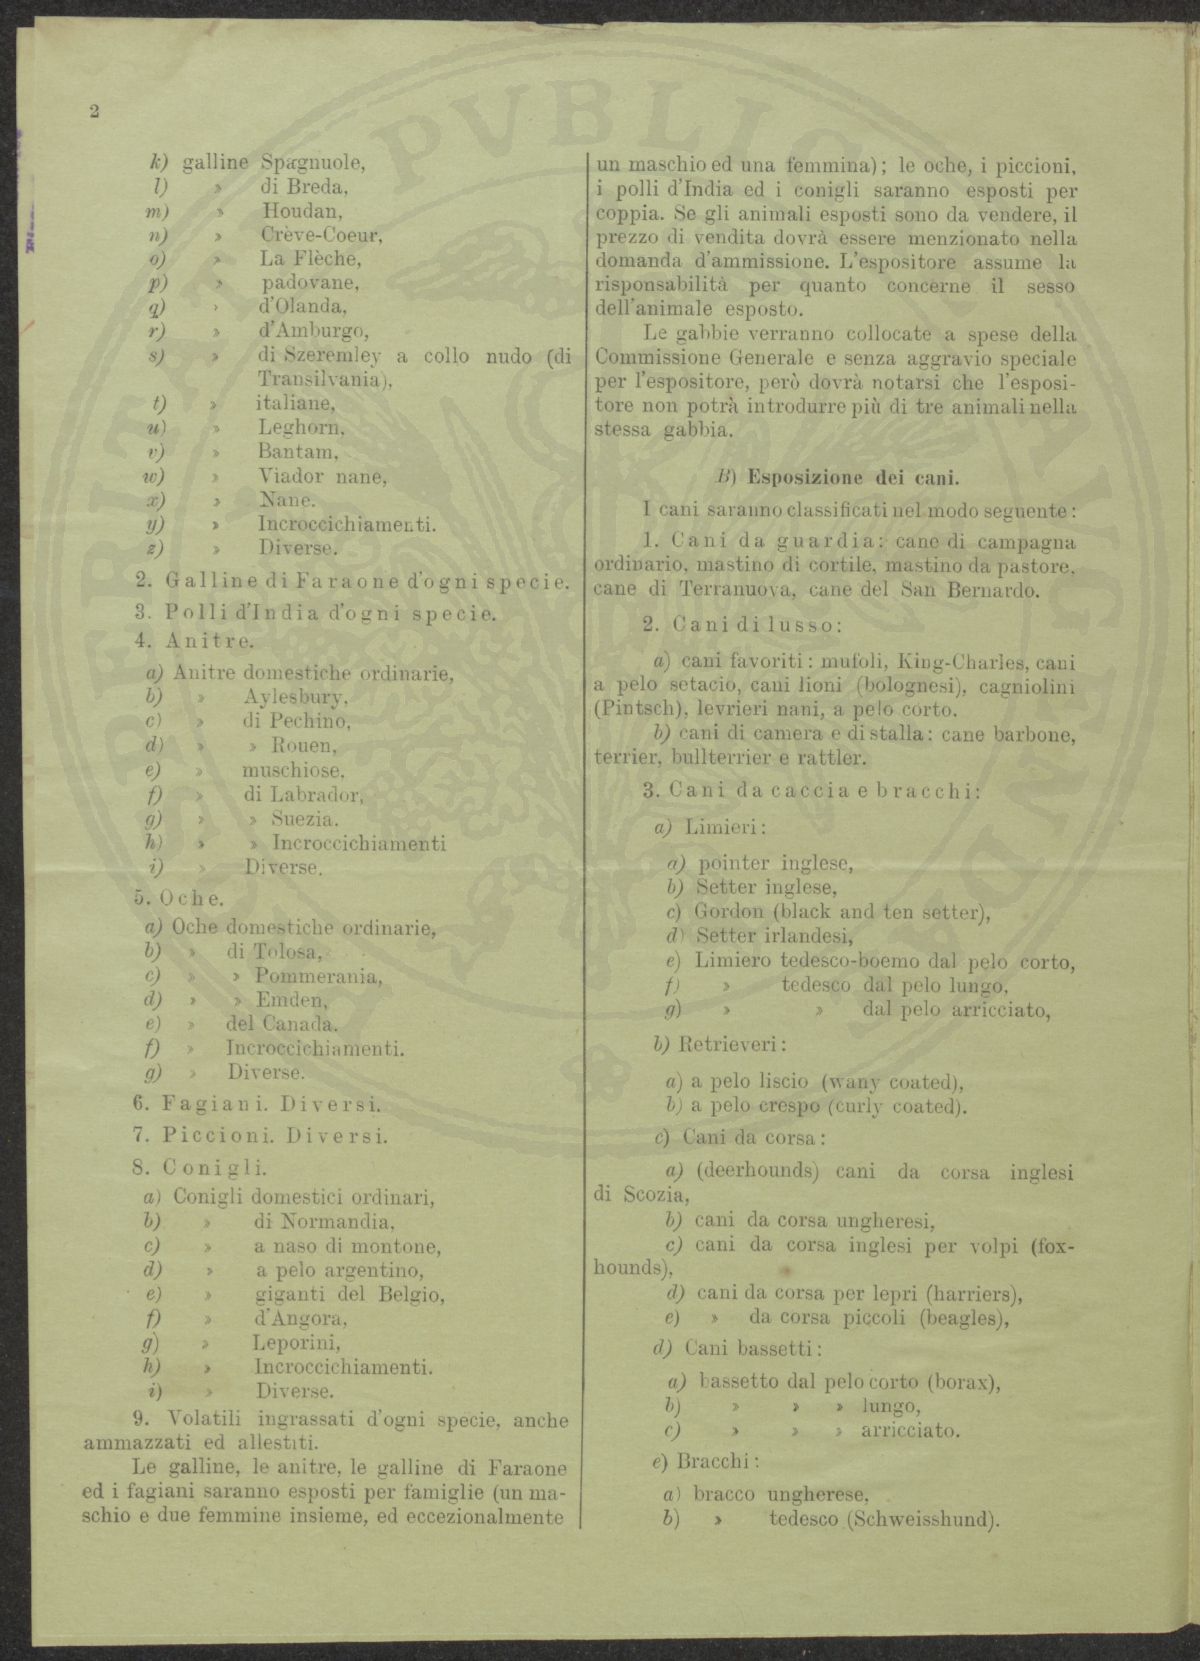 2
k) galline Spagnuole,
l) » di Breda,
m) » Houdan,
n) » Crève-Coeur,
o) » La Flèche,
p) » padovane,
q) » d'Olanda,
r) » d'Amburgo,
s) » di Szeremley a collo nudo (di
Transilvania),
t) » italiane,
u) » Leghorn,
v) » Bantam,
w) » Viador nane,
x) » Nane.
y) » Incroccichiamenti.
z) » Diverse.
2. Galline di Faraone d'ogni specie.
3. Polli d'India d'ogni specie.
4. Anitre.
a) Anitre domestiche ordinarie,
b) » Aylesbury,
c) » di Pechino,
d) » » Rouen,
e) » muschiose,
f) » di Labrador,
g) » » Suezia.
h) » » Incroccichiamenti
i) » Diverse.
5. Oche.
a) Oche domestiche ordinarie,
b) » di Tolosa,
c) » » Pommerania,
d) » » Emden,
e) » del Canada.
f) » Incroccichiamenti.
g) » Diverse.
6. Fagiani. Diversi.
7. Piccioni. Diversi.
8. Conigli.
a) Conigli domestici ordinari,
b) » di Normandia,
c) » a naso di montone,
d) » a pelo argentino,
e) » giganti del Belgio,
f) » d'Angora,
g) » Leporini,
h) » Incroccichiamenti.
i) » Diverse.
9. Volatili ingrassati d'ogni specie, anche
ammazzati ed allestiti.
Le galline, le anitre, le galline di Faraone
ed i fagiani saranno esposti per famiglie (un ma-
schio e due femmine insieme, ed eccezionalmente
un maschio ed una femmina); le oche, i piccioni,
i polli d'India ed i conigli saranno esposti per
coppia. Se gli animali esposti sono da vendere, il
prezzo di vendita dovrà essere menzionato nella
domanda d'ammissione. L'espositore assume la
risponsabilità per quanto concerne il sesso
dell'animale esposto.
Le gabbie verranno collocate a spese della
Commissione Generale e senza aggravio speciale
per l'espositore, però dovrà notarsi che l'esposi-
tore non potrà introdurre più di tre animali nella
stessa gabbia.
B) Esposizione dei cani.
I cani saranno classificati nel modo seguente:
1. Cani da guardia: cane di campagna
ordinario, mastino di cortile, mastino da pastore,
cane di Terranuova, cane del San Bernardo.
2. Cani di lusso:
a) cani favoriti: mufoli, King-Charles, cani
a pelo setacio, cani lioni (bolognesi), cagniolini
(Pintsch), levrieri nani, a pelo corto.
b) cani di camera e di stalla: cane barbone,
terrier, bullterrier e rattler.
3. Cani da caccia e bracchi:
a) Limieri:
a) pointer inglese,
b) Setter inglese,
c) Gordon (black and ten setter),
d) Setter irlandesi,
e) Limiero tedesco-boemo dal pelo corto,
f) » tedesco dal pelo lungo,
g) » » dal pelo arricciato,
b) Retrieveri:
a) a pelo liscio (wany coated),
b) a pelo crespo (curly coated).
c) Cani da corsa:
a) (deerhounds) cani da corsa inglesi
di Scozia,
b) cani da corsa ungheresi,
c) cani da corsa inglesi per volpi (fox-
hounds),
d) cani da corsa per lepri (harriers),
e) » da corsa piccoli (beagles),
d) Cani bassetti:
a) bassetto dal pelo corto (borax),
b) » » » lungo,
c) » » » arricciato.
e) Bracchi:
a) bracco ungherese,
b) » tedesco (Schweisshund).